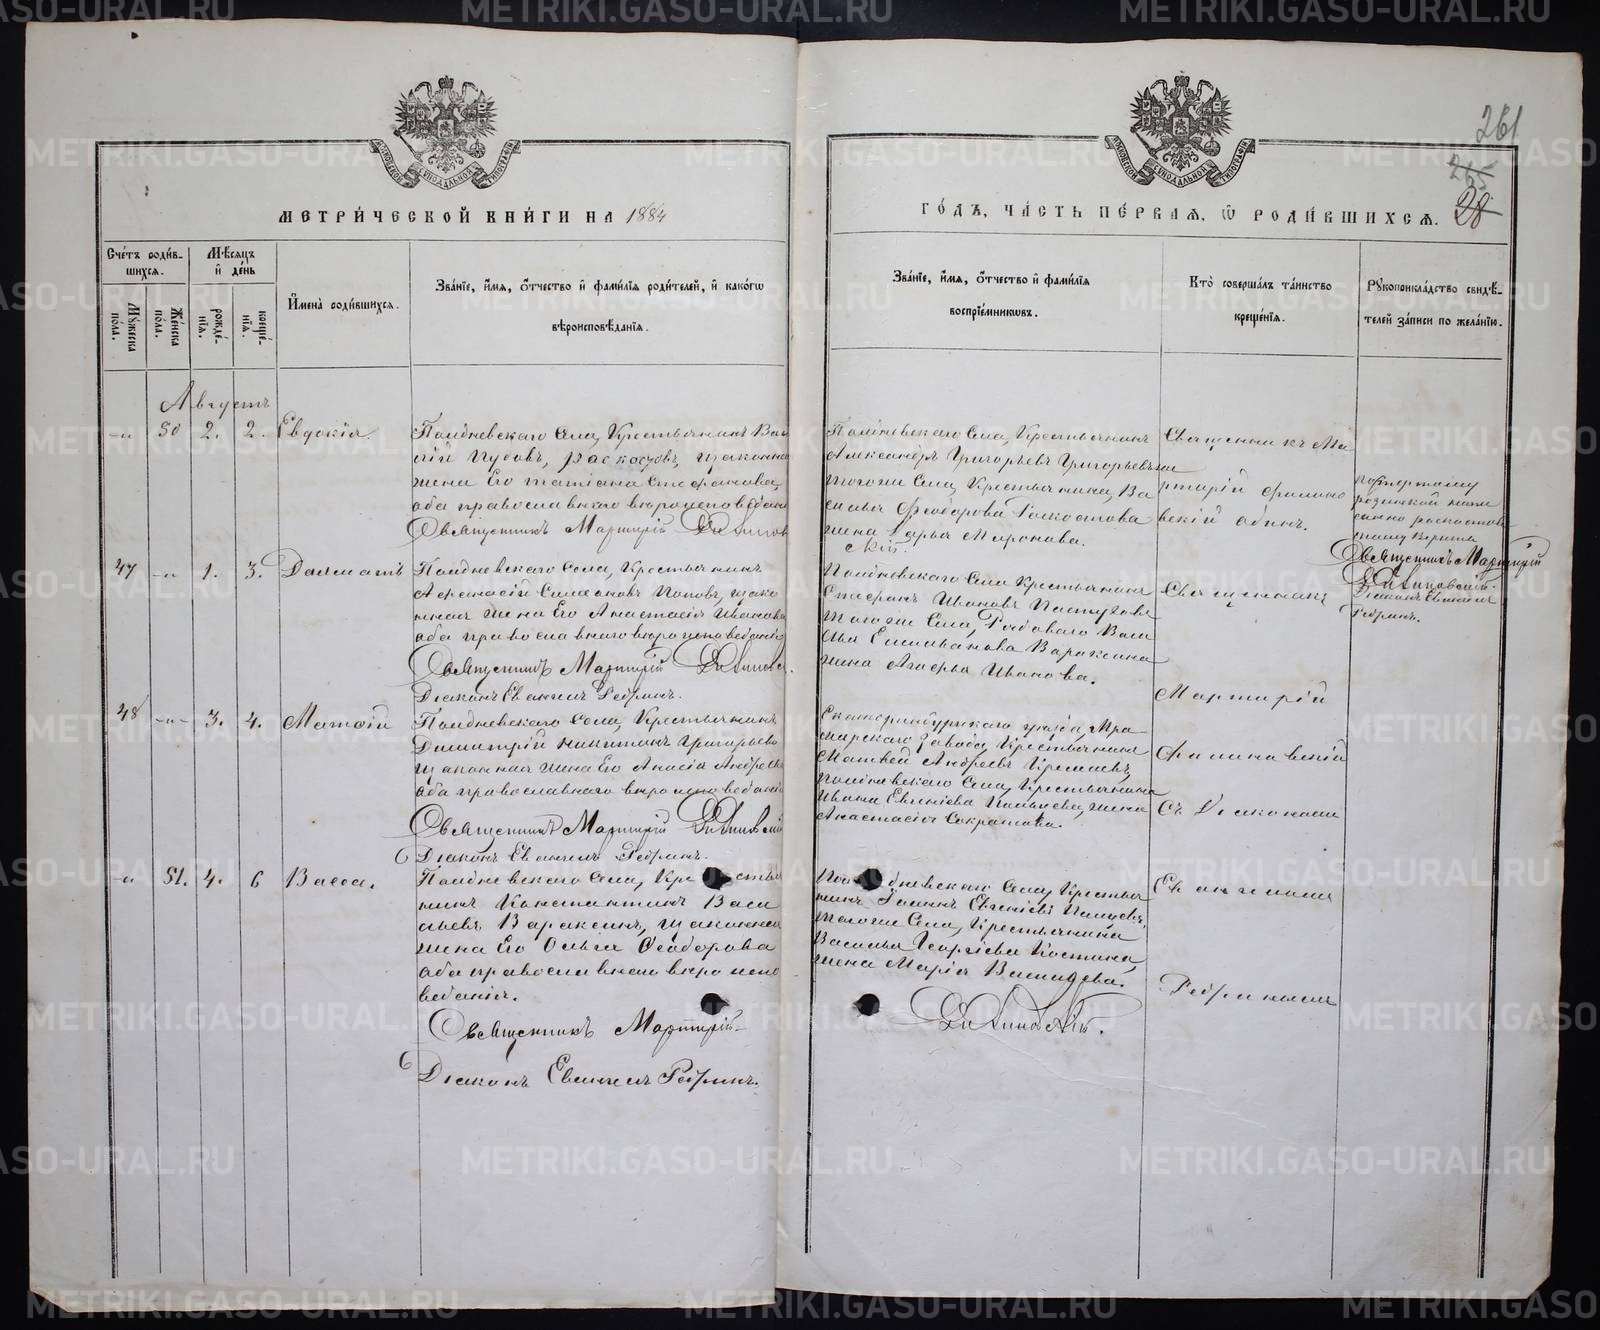 261
265
28
МЕТРИ́ЧЕСКОЙ КНИ́ГИ НА 1884
ГО́ДЪ, ЧА́СТЬ ПЕ́РВАЯ, Ѡ РОДИ́ВШИХСЯ.
Сче́тъ роди́в-
шихся.
Мѣ́сяцъ
и день
Му́жеска
по́ла.
Же́нска
по́ла.
рожде́-
нїя.
креще́-
нїя.
Имена̀ роди́вшихся.
Зва́нїе, и́мя, о́тчество и фами́лїя роди́телей, и како́гѡ
вѣроисповѣ́данїя.
Зва́нїе, и́мя, о́тчество и фами́лїя
воспрїе́мникѡвъ.
Кто̀ соверша́лъ та́инство
креще́нїя.
Рукоприкла́дство свидѣ́-
телей за́писи по жела́нїю.
Августъ
-"- 50 2. 2. Евдокія.
Полдневскаго Села, Крестьянинъ Васи
лій Гусовъ, Раскосовъ, законная
жена Его Татіана Стефанова,
оба православнаго вѣроисповеданія
Священникъ Мартирій
Полдневскаго Села, Крестьянинъ
Александръ Григорьевъ Григорьевъ
тогоже Села, Крестьянина, Ва
силья Феодорова
жена Дарья Миронова.
Священникъ Ма
ртирій
Священникъ Мартирій
Діаконъ Евангелъ
Ребринъ.
47 -"- 1. 3. Далматъ
Полдневскаго Села, Крестьянинъ
Афанасій Симеоновъ Поповъ, зако
нная жена Его Анастасія Иванова
оба православнаго вѣроисповеданія
Священникъ Мартирій
Діаконъ Евангелъ Ребринъ.
Полдневскаго Села Крестьянинъ
Стефанъ Ивановъ Пастуховъ
тогоже Села, Рядоваго Васи
лья Емельянова Вараксина
жена Агафья Иванова.
Священникъ
Мартирій
48 -"- 3. 4. Матѳій
Полдневскаго Села, Крестьянинъ
Димитрій Никитинъ Григорьевъ
законная жена Его Анисія Андреева
оба православнаго вѣроисповеданія
Священникъ Мартирій
Діаконъ Евангелъ Ребринъ.
Екатеринбургскаго уѣзда, Мра
морскаго Завода, Крестьянинъ
Матвей Андреевъ
Полдневскаго Села, Крестьянина
Ивана Евгеніева жена
Анастасія Сократова.
Съ Діакономъ
-"- 51. 4. 6 Васса.
Полдневскаго Села, Крестья
нинъ Константинъ Васи
льевъ Вараксинъ, законная
жена Его Ольга Феодорова
оба православнаго вѣроиспо
веданія.
Священникъ Мартирій
Діаконъ Евангелъ Ребринъ.
Полдневскаго Села, Крестья
нинъ Іоаннъ Евгеніевъ
тогоже Села, Крестьянина
Василья Георгіева Костина,
жена Марія
Евангеломъ
Ребринымъ